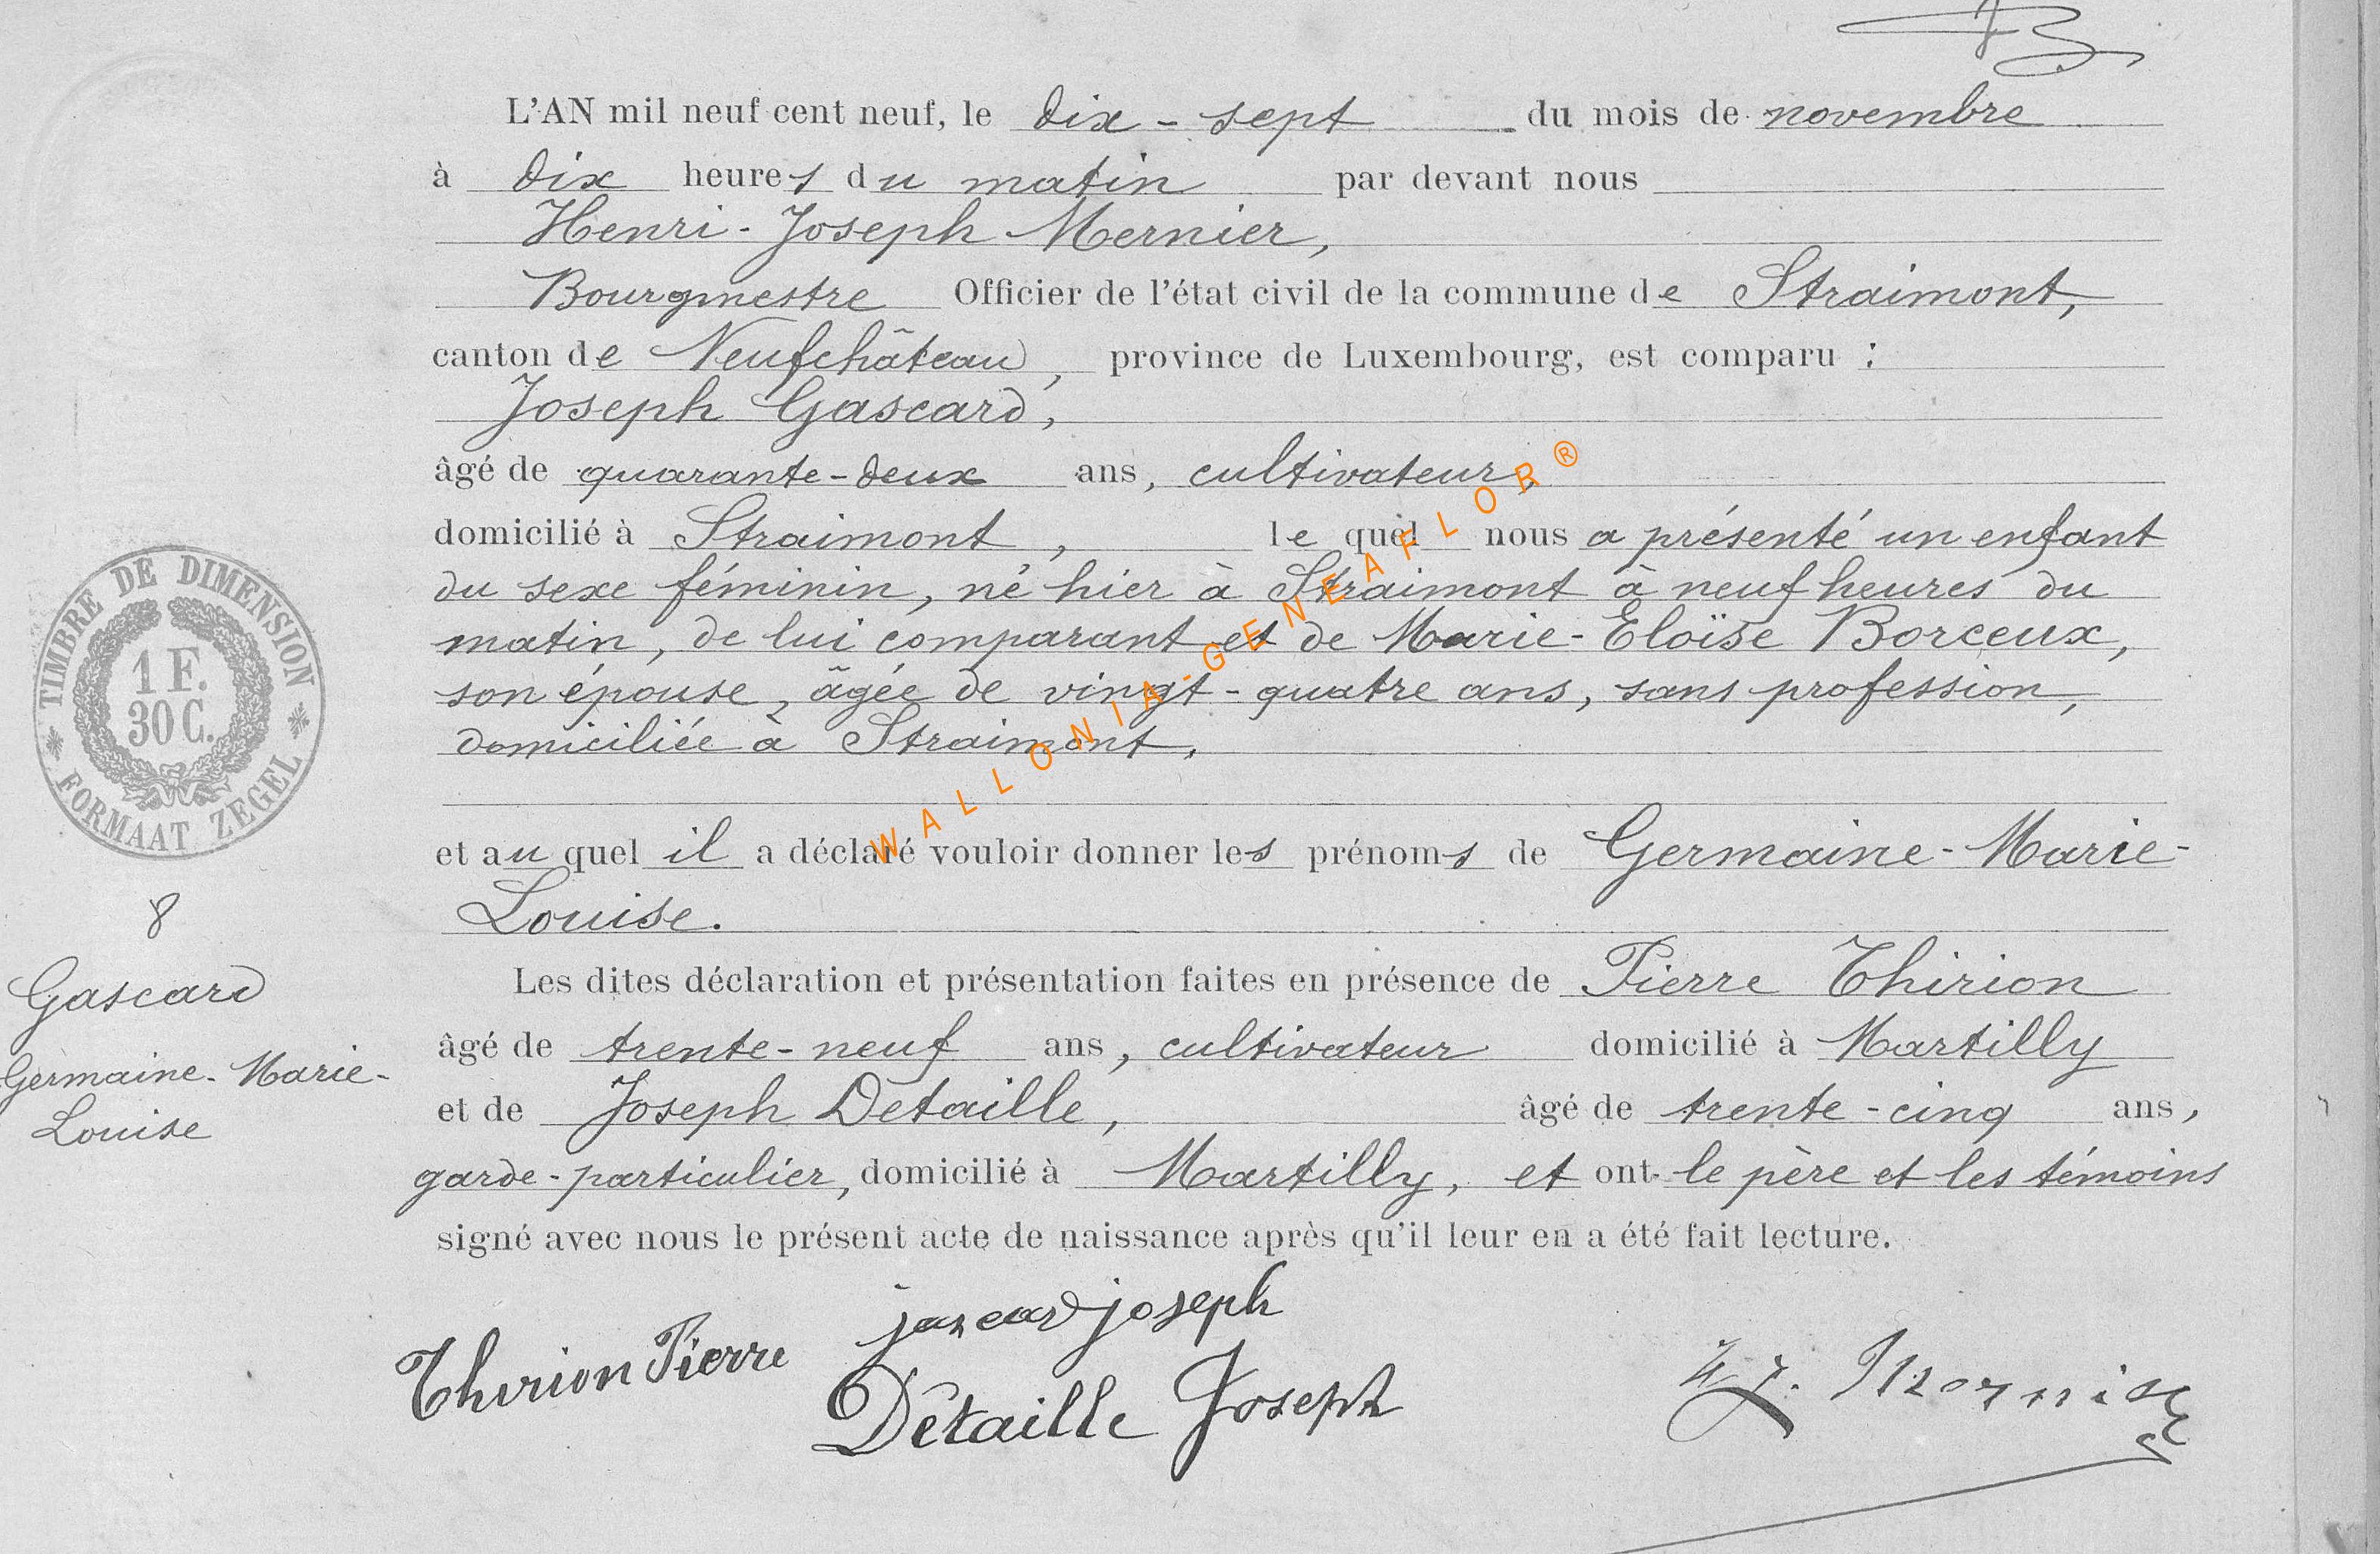 L'AN mil neuf cent neuf, le dix-sept du mois de novembre
à dix heures du matin par devant nous
Henri-Joseph Mernier,
Bourgmestre Officier de l'état civil de la commune de Straimont,
canton de Neufchâteau, province de Luxembourg, est comparu :
Joseph Gascard,
âgé de quarante-deux ans, cultivateur,
domicilié à Straimont, le quel nous a présenté un enfant
du sexe féminin, né hier à Straimont à neuf heures du
matin, de lui comparant et de Marie-Eloïse Borceux,
son épouse, âgée de vingt-quatre ans, sans profession,
domiciliée à Straimont,
et au quel il a déclaré vouloir donner les prénoms de Germaine-Marie-
Louise.
Les dites déclaration et présentation faites en présence de Pierre Thirion
âgé de trente-neuf ans, cultivateur domicilié à Martilly
et de Joseph Detaille, âgé de trente-cinq ans,
garde-particulier, domicilié à Martilly, et ont le père et les témoins
signé avec nous le présent acte de naissance après qu'il leur en a été fait lecture.
TIMBRE DE DIMENSION
1 F.
30 C.
FORMAAT ZEGEL
8
Gascard
Germaine-Marie-
Louise
WALLONIA-GENEAFLOR®
joseph
Thirion Pierre
Detaille Joseph